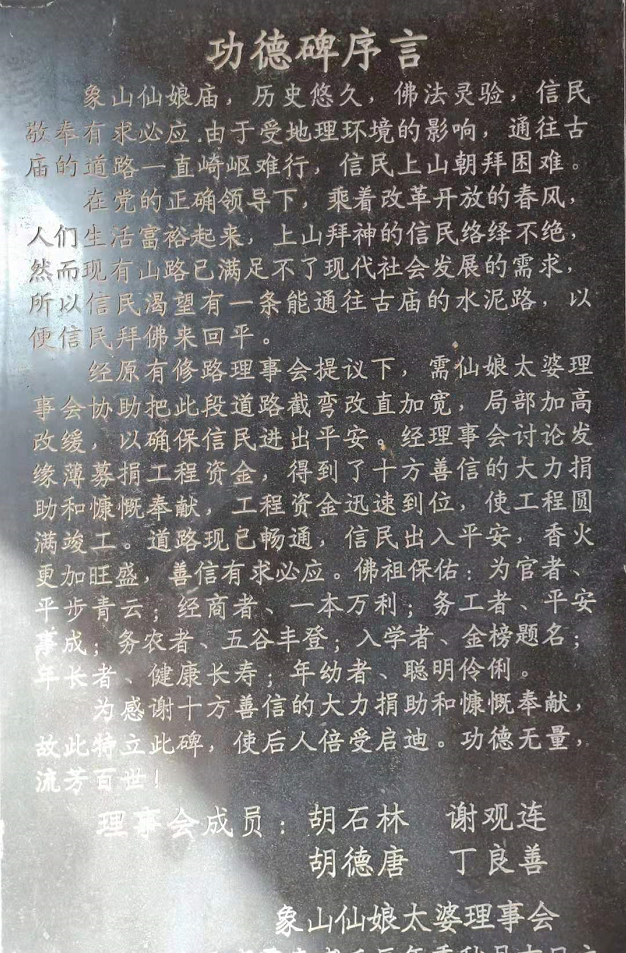 功德碑序言
象山仙娘庙，历史悠久，佛法灵验，信民
敬奉有求必应.由于受地理环境的影响，通往古
庙的道路一直崎岖难行，信民上山朝拜困难。
在党的正确领导下，乘着改革开放的春风，
人们生活富裕起来，上山拜神的信民络绎不绝，
然而现有山路已满足不了现代社会发展的需求，
所以信民渴望有一条能通往古庙的水泥路，以
便信民拜佛来回平。
经原有修路理事会提议下，需仙娘太婆理
事会协助把此段道路截弯改直加宽，局部加高
改缓，以确保信民进出平安。经理事会讨论发
缘薄募捐工程资金，得到了十方善信的大力捐
助和慷慨奉献，工程资金迅速到位，使工程圆
满竣工。道路现已畅通，信民出入平安，香火
更加旺盛，善信有求必应。佛祖保佑：为官者、
平步青云；经商者、一本万利；务工者、平安
事成；务农者、五谷丰登；入学者、金榜题名；
年长者、健康长寿；年幼者、聪明伶俐。
为感谢十方善信的大力捐助和慷慨奉献，
故此特立此碑，使后人倍受启迪。功德无量，
流芳百世！
理事会成员：胡石林 谢观连
胡德唐 丁良善
象山仙娘太婆理事会